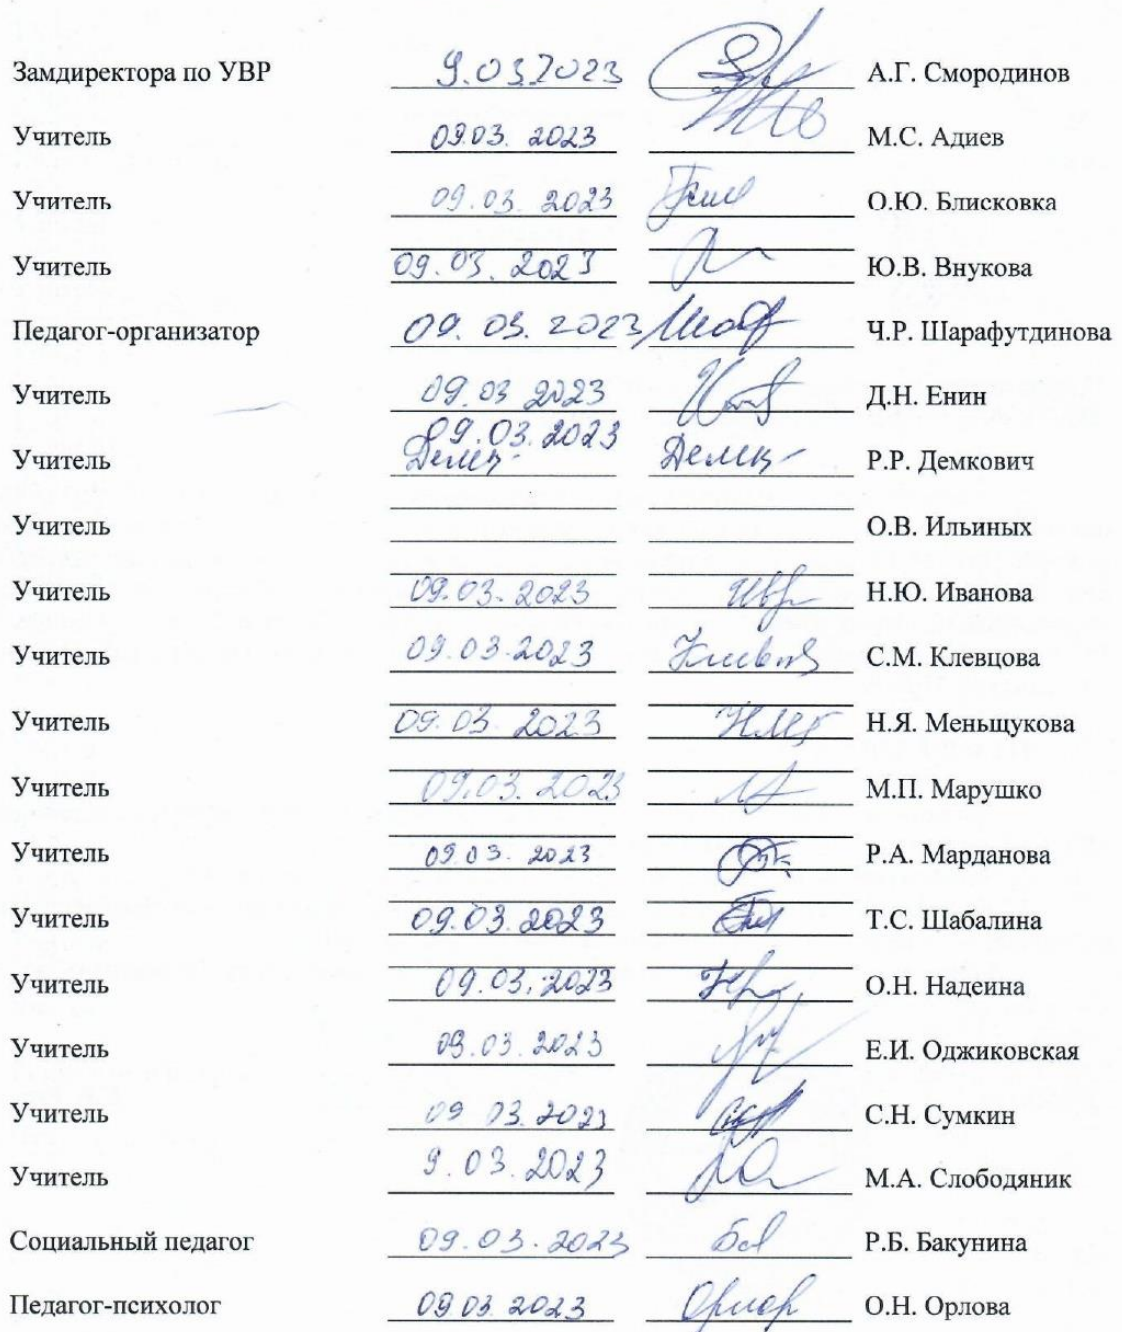 Замдиректора по УВР 9.03.2023 А.Г. Смородинов
Учитель 09.03. 2023 М.С. Адиев
Учитель 09.03. 2023 О.Ю. Блисковка
Учитель 09.03. 2023 Ю.В. Внукова
Педагог-организатор 09. 03. 2023 Ч.Р. Шарафутдинова
Учитель 09.03 2023 Д.Н. Енин
Учитель 09.03.2023 Р.Р. Демкович
Учитель О.В. Ильиных
Учитель 09.03.2023 Н.Ю. Иванова
Учитель 09.03.2023 С.М. Клевцова
Учитель 09.03. 2023 Н.Я. Меньщукова
Учитель 09.03. 2023 М.П. Марушко
Учитель 09.03. 2023 Р.А. Марданова
Учитель 09.03.2023 Т.С. Шабалина
Учитель 09.03.2023 О.Н. Надеина
Учитель 09.03. 2023 Е.И. Оджиковская
Учитель 09 03.2023 С.Н. Сумкин
Учитель 9.03.2023 М.А. Слободяник
Социальный педагог 09.03.2023 Р.Б. Бакунина
Педагог-психолог 09.03 2023 О.Н. Орлова